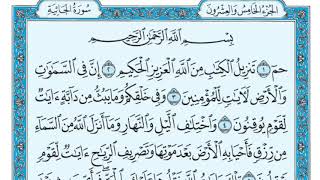 الجزء الخامس والعشرون
سورة الجاثية
بِسْمِ اللَّهِ الرَّحْمَٰنِ الرَّحِيمِ
حمٓ ١ تَنزِيلُ الْكِتَٰبِ مِنَ اللَّهِ الْعَزِيزِ الْحَكِيمِ ٢ إِنَّ فِي السَّمَٰوَٰتِ
وَالْأَرْضِ لَءَايَٰتٍ لِّلْمُؤْمِنِينَ ٣ وَفِي خَلْقِكُمْ وَمَا يَبُثُّ مِن دَآبَّةٍ ءَايَٰتٌ
لِّقَوْمٍ يُوقِنُونَ ٤ وَاخْتِلَٰفِ الَّيْلِ وَالنَّهَارِ وَمَآ أَنزَلَ اللَّهُ مِنَ السَّمَآءِ
مِن رِّزْقٍ فَأَحْيَا بِهِ الْأَرْضَ بَعْدَ مَوْتِهَا وَتَصْرِيفِ الرِّيَٰحِ ءَايَٰتٌ لِّقَوْمٍ